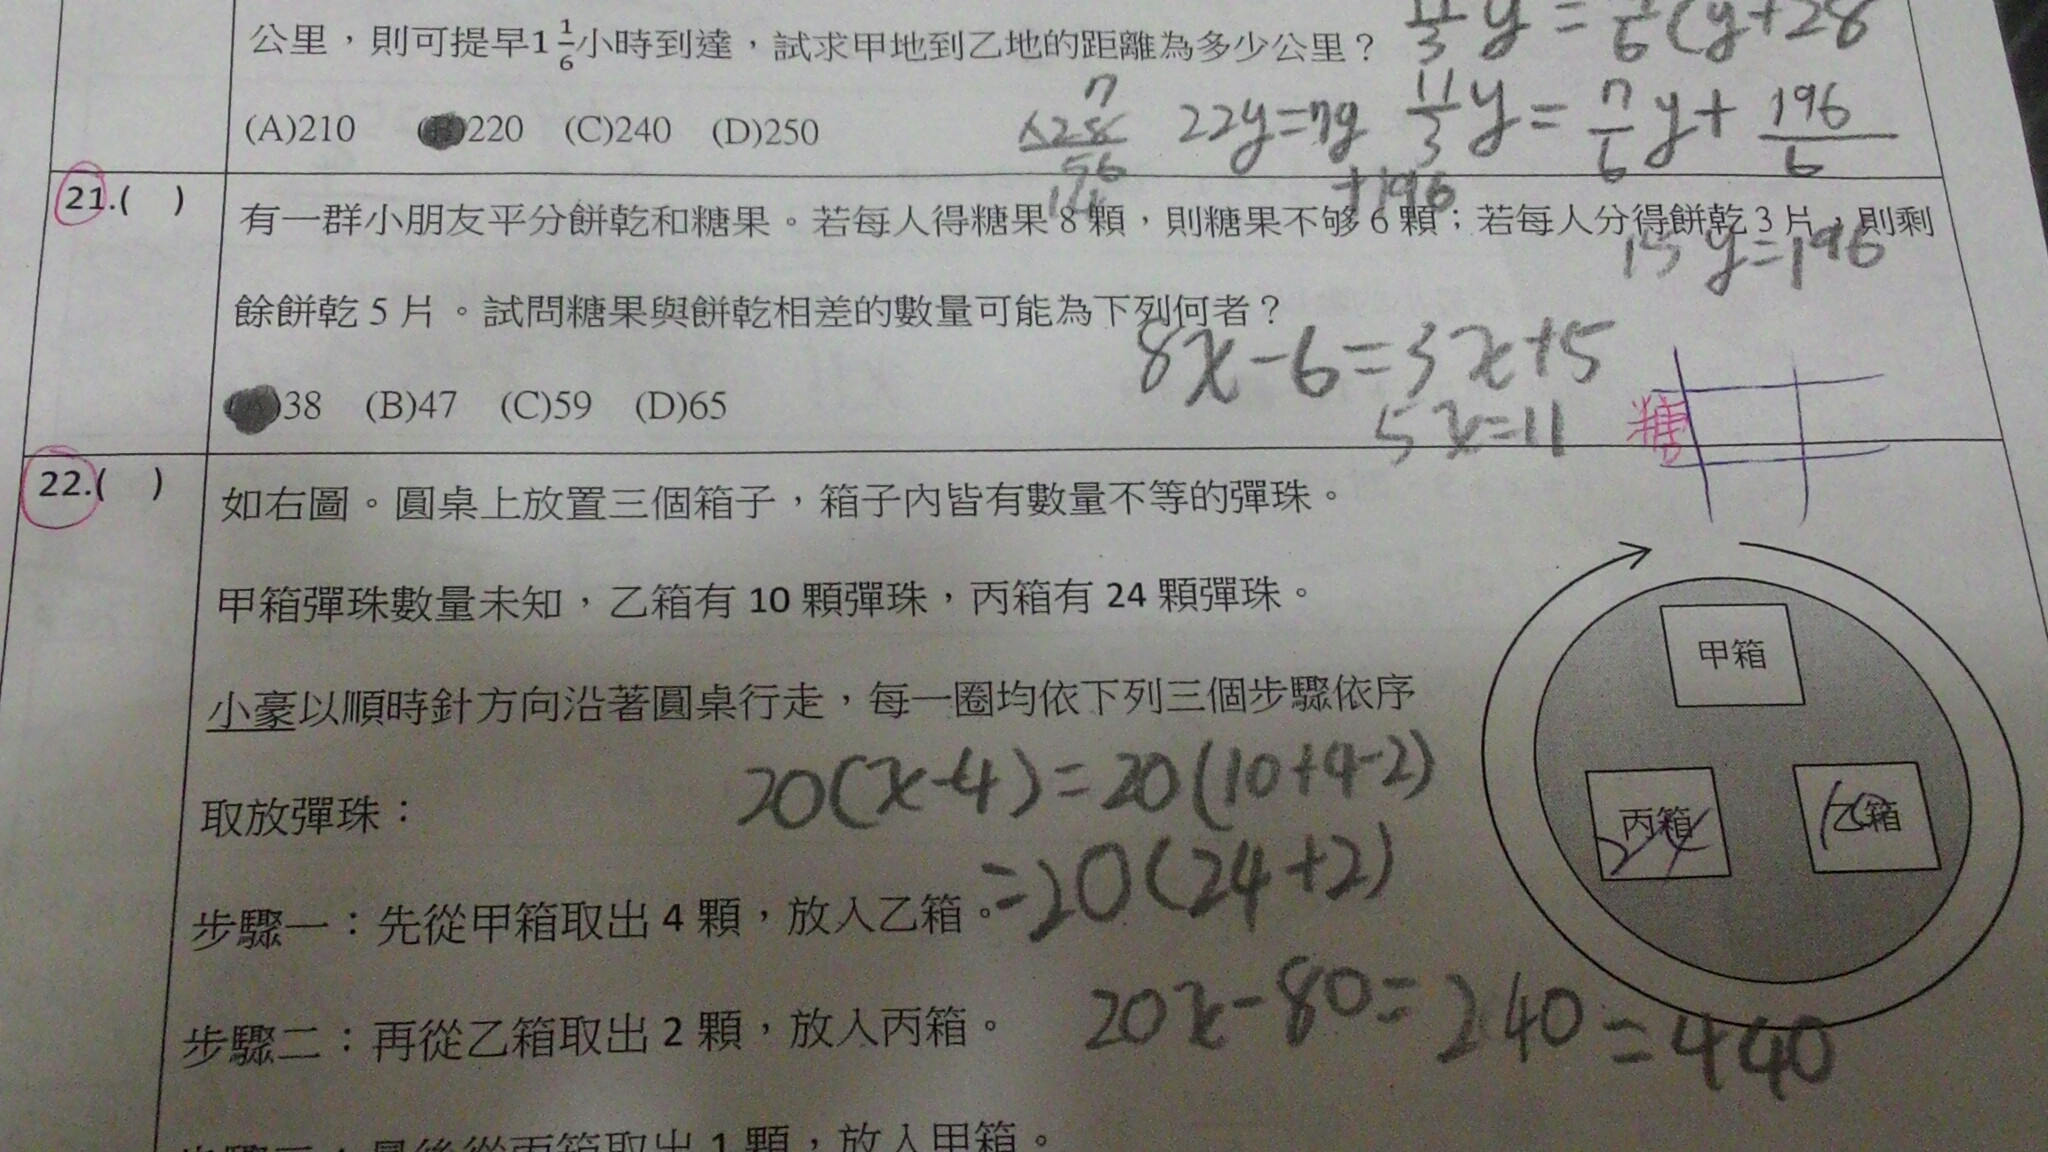 公里，則可提早1 1/6小時到達，試求甲地到乙地的距離為多少公里？
y = (y+28
(A)210 220 (C)240 (D)250
7
×28
56
14
22y=7y
+196
11/3 y = 7/6 y + 196/6
15y=196
21.( )
有一群小朋友平分餅乾和糖果。若每人得糖果 8 顆，則糖果不够 6 顆；若每人分得餅乾 3 片，則剩
餘餅乾 5 片。試問糖果與餅乾相差的數量可能為下列何者？
8x-6=3x+5
5x=11
糖
38 (B)47 (C)59 (D)65
22.( )
如右圖。圓桌上放置三個箱子，箱子內皆有數量不等的彈珠。
甲箱彈珠數量未知，乙箱有 10 顆彈珠，丙箱有 24 顆彈珠。
小豪以順時針方向沿著圓桌行走，每一圈均依下列三個步驟依序
取放彈珠：
20(x-4)=20(10+4-2)
=20(24+2)
步驟一：先從甲箱取出 4 顆，放入乙箱。
步驟二：再從乙箱取出 2 顆，放入丙箱。
20x-80=240=440
步驟三：最後從丙箱取出 1 顆，放入甲箱。
甲箱
丙箱
24
乙箱
10